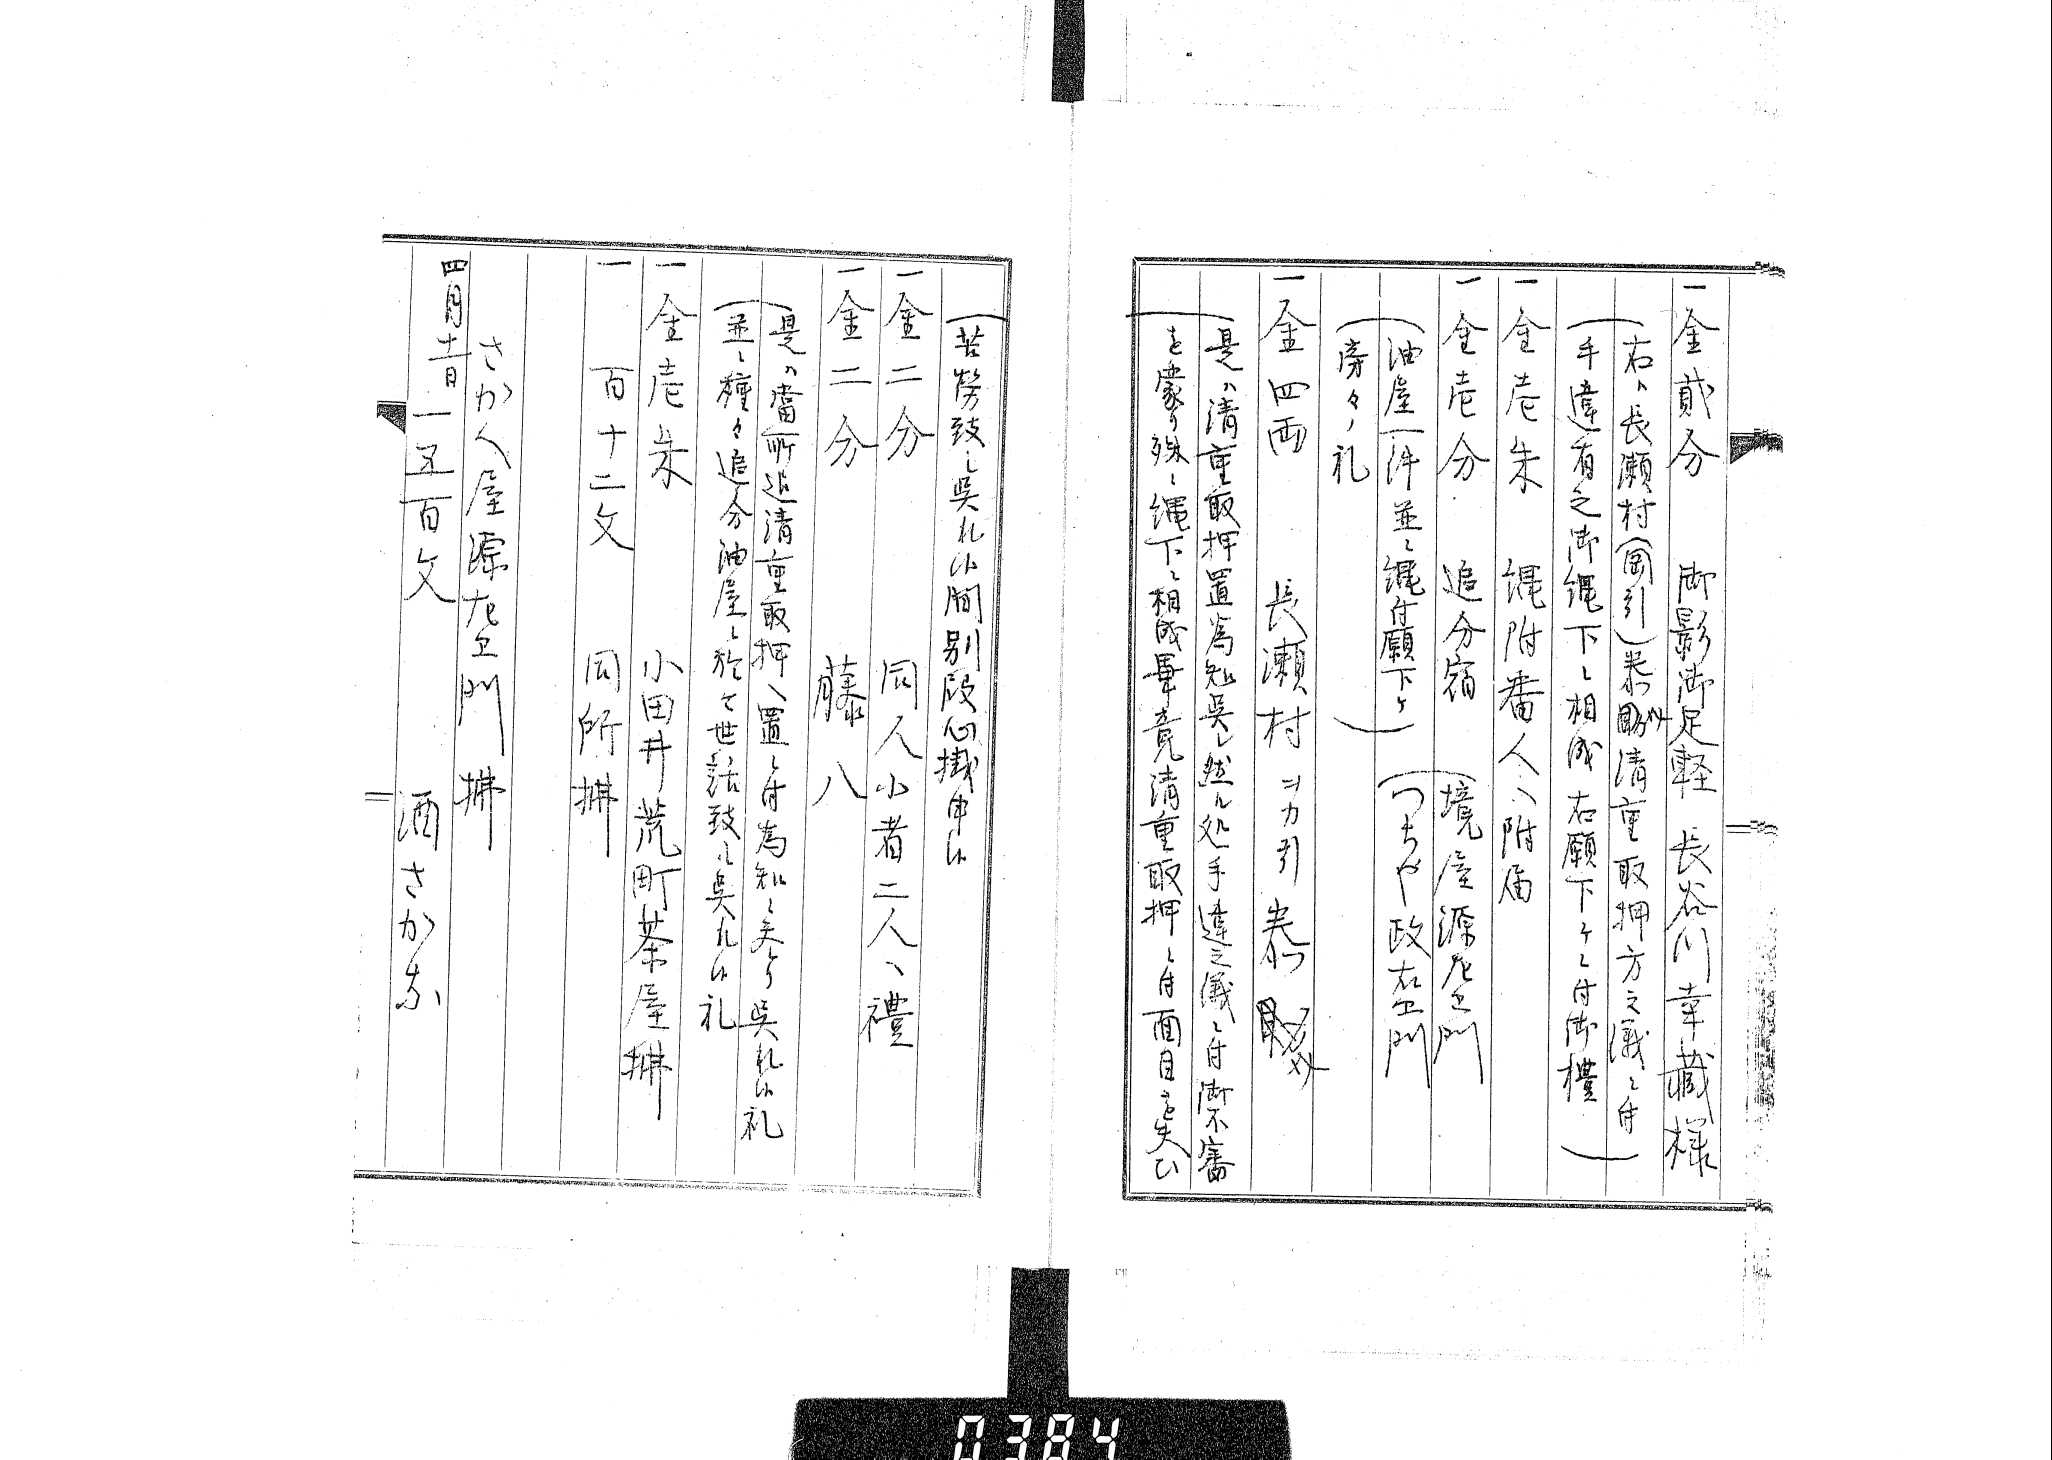 一金貮分　御影御足軽　長谷川幸蔵様
右ハ長瀬村(岡引)巻助清重取押方之儀ニ付
手違有之御縄下ニ相成右願下ケニ付御禮
一金壱朱　縄附番人ヘ附届
一金壱分　追分宿　境屋源左エ門
油屋一件並ニ縄付願下ケ　つちや政右エ門
旁々ノ礼
一金四両　長瀬村ヲカ引
是ハ清重取押置為知呉し然ル処手違之儀ニ付御不審
を蒙り殊ニ縄下ニ相成畢竟清重取押ニ付面目を失ひ
苦労致し呉れ候間別段心掛申候
一金二分　同人小者二人ヘ禮
一金二分　藤八
是ハ當所追清重取押ヘ置ニ付為知ニ参り呉れ候礼
並ニ種々追分油屋ニ於て世話致し呉れ候礼
一金壱朱　小田井荒町茶屋拂
一　百十二文　同所拂
さかく屋源左エ門拂
四月十一日
一五百文　酒さかな
0384